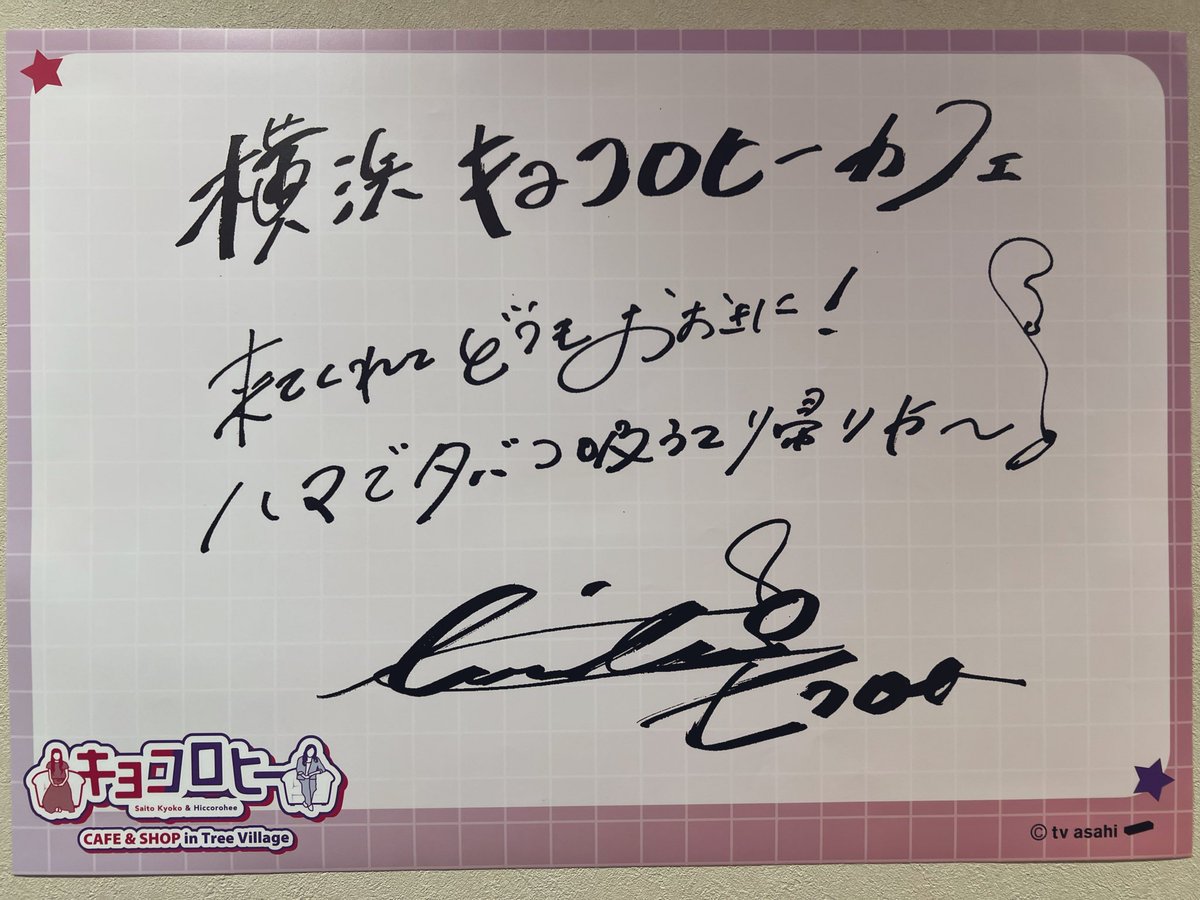 横浜 キョコロヒーカフェ
来てくれてどうもおおきに!
ハマでタバコ吸うて帰りや〜
ヒコロヒー
キョコロヒー
Saito Kyoko & Hiccorohee
CAFE & SHOP in Tree Village
© tv asahi